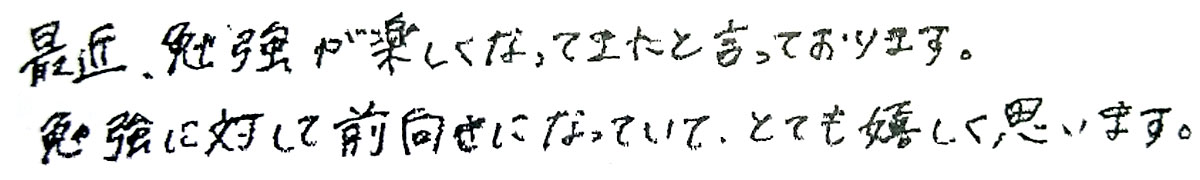 最近、勉強が楽しくなってきたと言っております。
勉強に対して前向きになっていて、とても嬉しく思います。